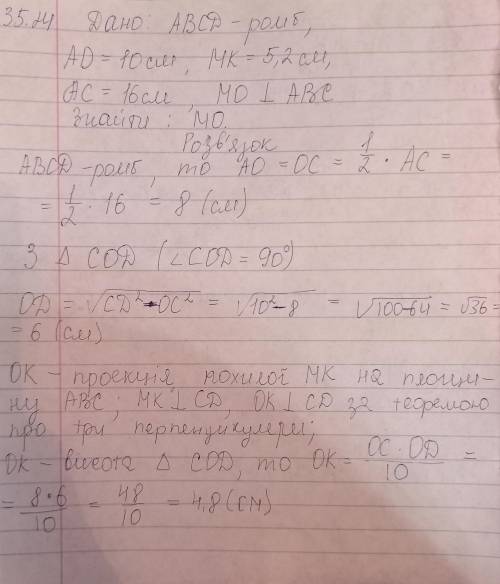 35.24 Дано: ABCD - ромб,
AD = 10см, MK = 5,2 см,
AC = 16см, MO ⊥ ABC
Знайти: MO.
Розв'язок
ABCD - ромб, то AO = OC = 1/2 · AC =
= 1/2 · 16 = 8 (см)
З Δ COD (∠COD = 90°)
OD = √CD² - OC² = √10² - 8 = √100-64 = √36 =
= 6 (см)
OK - проекція похилої MK на площи-
ну ABC; MK ⊥ CD, OK ⊥ CD за теоремою
про три перпендикулери;
OK - висота Δ COD, то OK = OC · OD / 10 =
= 8 · 6 / 10 = 48 / 10 = 4,8 (см)